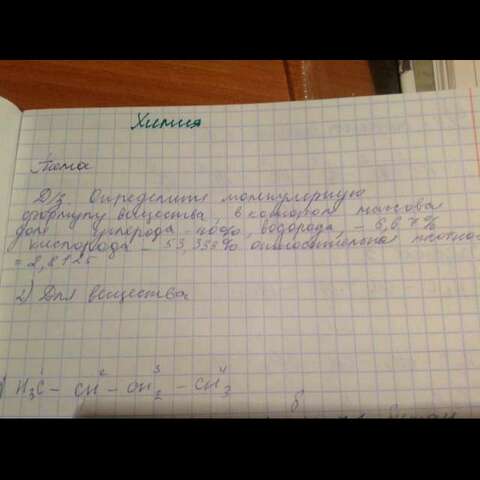 Химия
Тема
Д/з. Определите молекулярную
формулу вещества, в котором массова
доля углерода - 40%, водорода, - 6,67%
кислорода - 53,333% относительная плотнос
= 2,8125
2) Для вещества
1 2 3 4
H3C - CH - CH2 - CH3
б